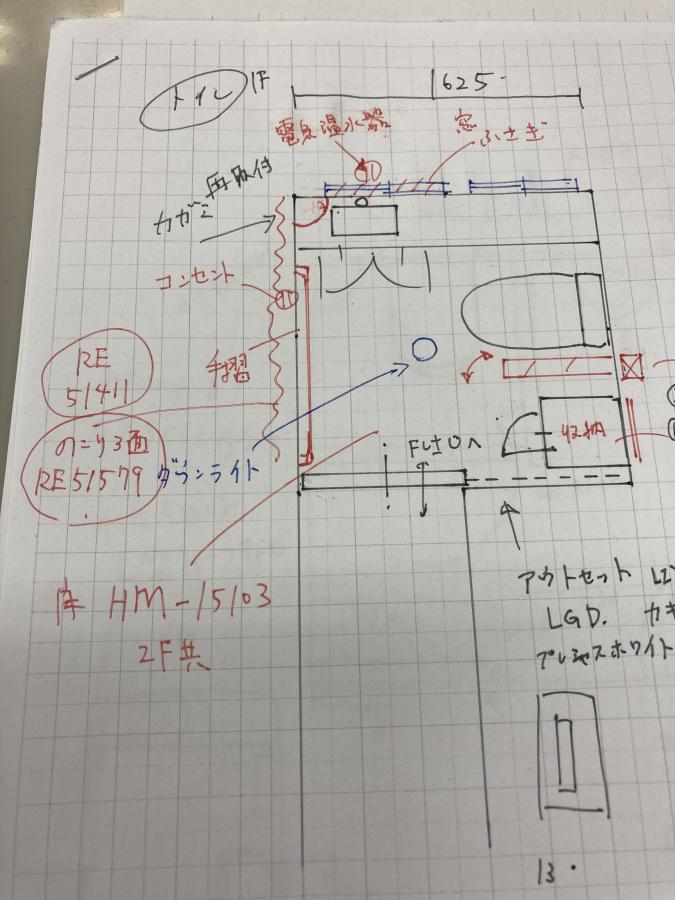 トイレ 1F
1625
電気温水器
窓
ふさぎ
再取付
カガミ
コンセント
RE
51411
手摺
のこり3面
RE51579
ダウンライト
FL±0へ
収納
床 HM-15103
2F共
アウトセット
LGD.
プレシャスホワイト
13